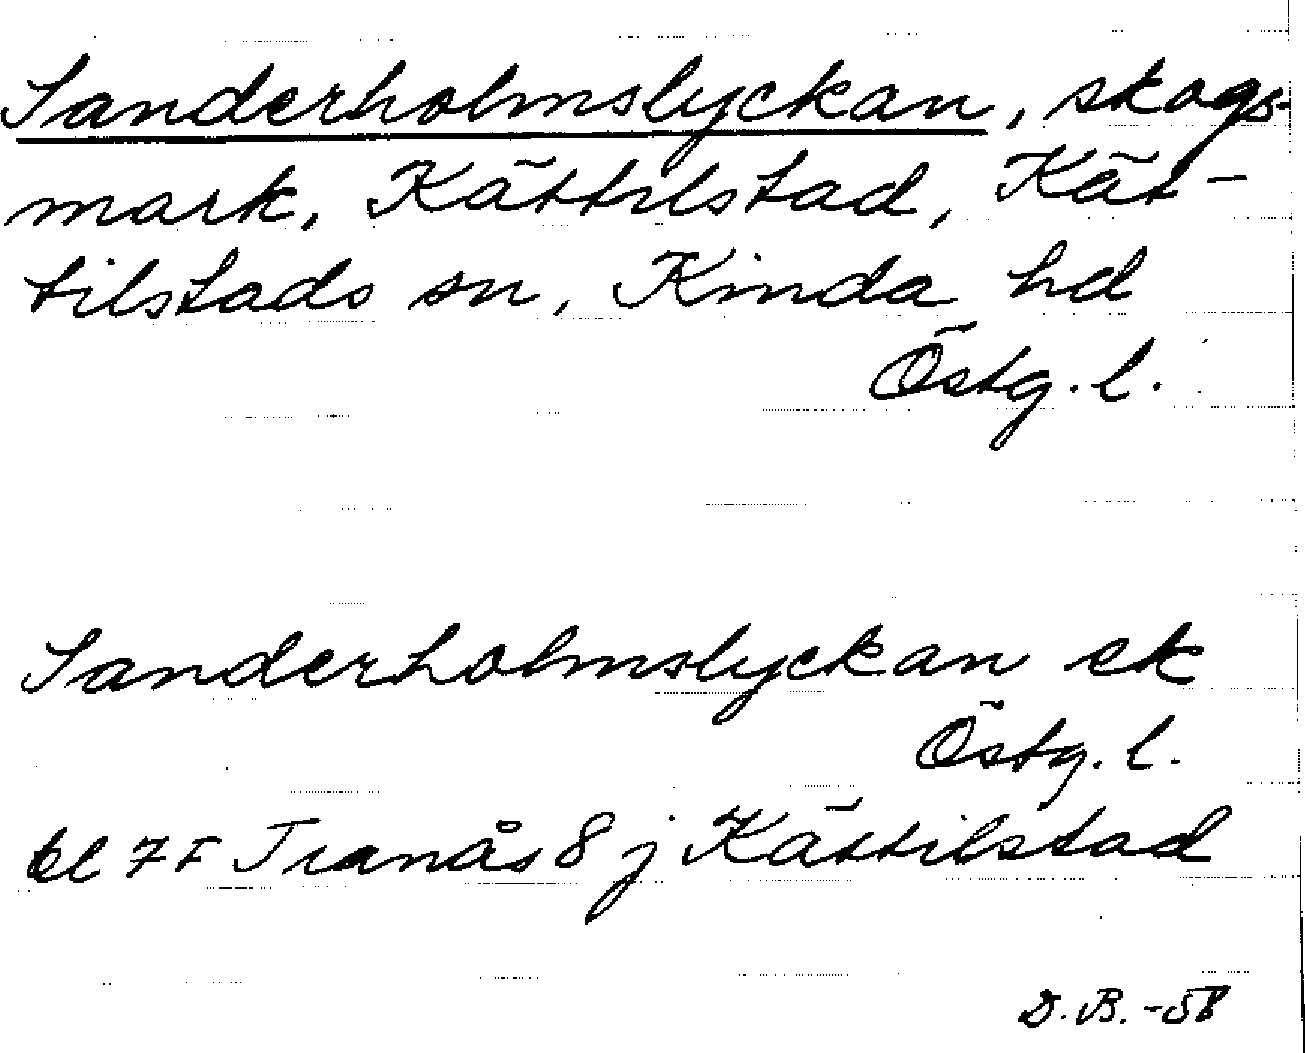 Sanderholmslyckan, skogs-
mark, Kättilstad, Kät-
tilstads sn, Kinda hd
Östg. l.
Sanderholmslyckan ek
Östg. l.
bl 7F Tranås 8 j Kättilstad
D.B. -58